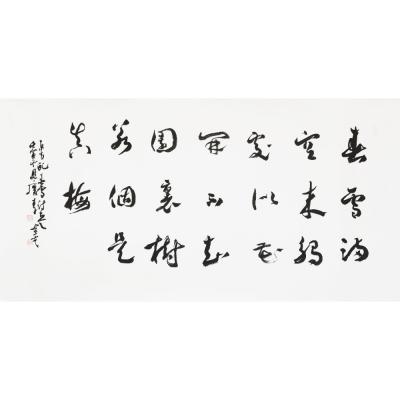 春雪滿
空来觸
處似花
開不知
園裏樹
若個是
真梅
東方虬